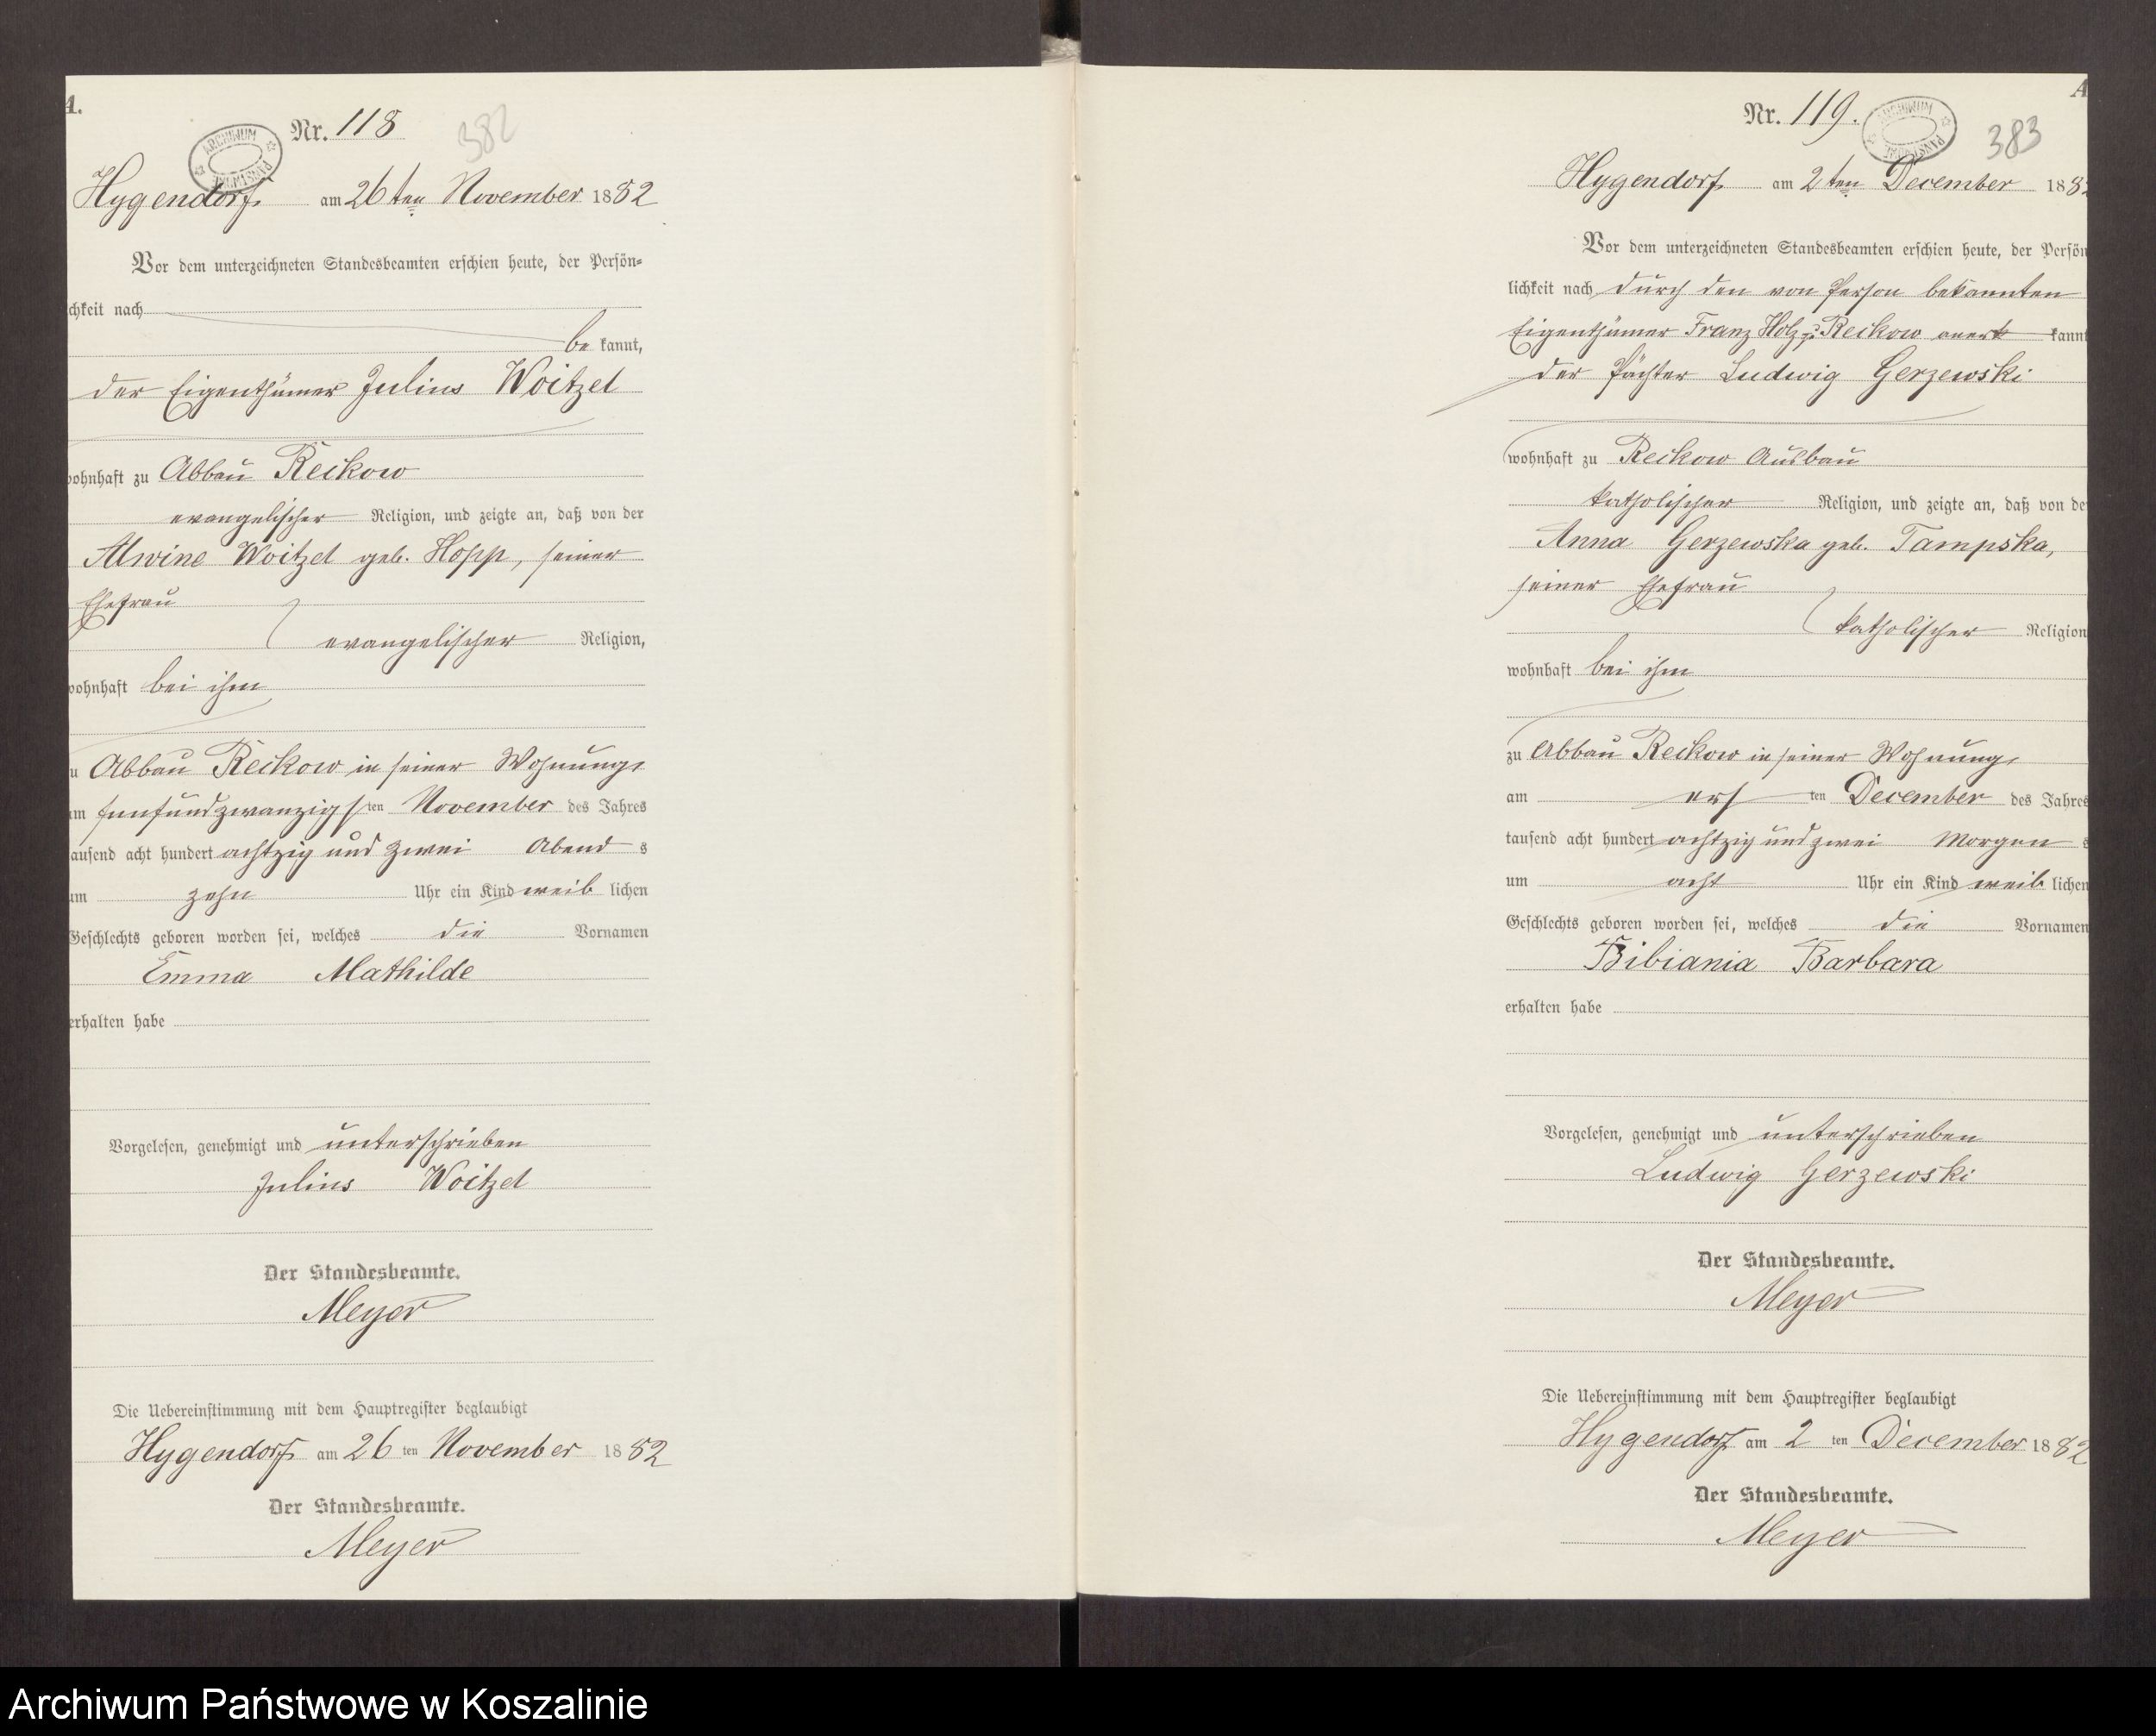 A.
Nr. 118
382
ARCHIWUM PAŃSTWOWE
Hygendorf am 26ten November 1882
Vor dem unterzeichneten Standesbeamten erschien heute, der Persön-
chkeit nach
be kannt,
der Eigenthümer Julius Woitzel
wohnhaft zu Abbau Reckow
evangelischer Religion, und zeigte an, daß von der
Alwine Woitzel geb. Hopp, seiner
Ehefrau
evangelischer Religion,
wohnhaft bei ihm
u Abbau Reckow in seiner Wohnung,
am fünfundzwanzigsten November des Jahres
tausend acht hundert achtzig und zwei Abend s
um zehn Uhr ein Kind weib lichen
Geschlechts geboren worden sei, welches die Vornamen
Emma Mathilde
erhalten habe
Vorgelesen, genehmigt und unterschrieben
Julius Woitzel
Der Standesbeamte.
Meyer
Die Uebereinstimmung mit dem Hauptregister beglaubigt
Hygendorf am 26 ten November 1882
Der Standesbeamte.
Meyer
A
Nr. 119.
383
ARCHIWUM PAŃSTWOWE
Hygendorf am 2ten December 188
Vor dem unterzeichneten Standesbeamten erschien heute, der Persön
lichkeit nach durch den von Person bekannten
Eigenthümer Franz Holz zu Reckow aner kannt
der Pächter Ludwig Gerzewski
wohnhaft zu Reckow Ausbau
katholischer Religion, und zeigte an, daß von de
Anna Gerzewska geb. Tampska,
seiner Ehefrau
katholischer Religion
wohnhaft bei ihm
zu Abbau Reckow in seiner Wohnung,
am ers ten December des Jahres
tausend acht hundert achtzig und zwei Morgen s
um acht Uhr ein Kind weib lichen
Geschlechts geboren worden sei, welches die Vornamen
Bibiania Barbara
erhalten habe
Vorgelesen, genehmigt und unterschrieben
Ludwig Gerzewski
Der Standesbeamte.
Meyer
Die Uebereinstimmung mit dem Hauptregister beglaubigt
Hygendorf am 2 ten December 1882
Der Standesbeamte.
Meyer
Archiwum Państwowe w Koszalinie